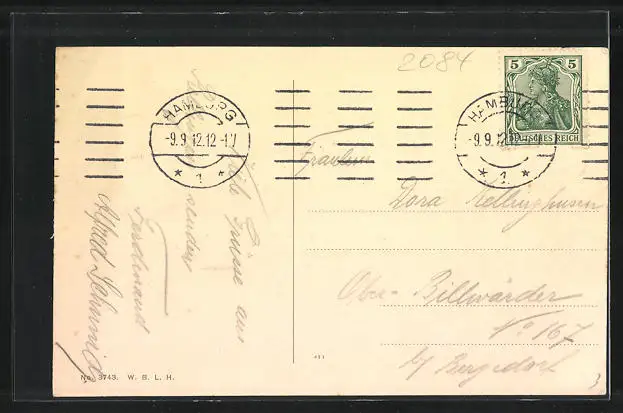 2084
HAMBURG
-9.9.12.12-1 V
* 1 *
HAMBURG
-9.9.12
* 1 *
5 5
DEUTSCHES REICH
Fräulein
Dora
Ober-Billwärder
No 167
b/ Bergedorf
Viele Grüsse aus
senden
Ferdinand
Alfred Schmidt
No. 3743. W. B. L. H.